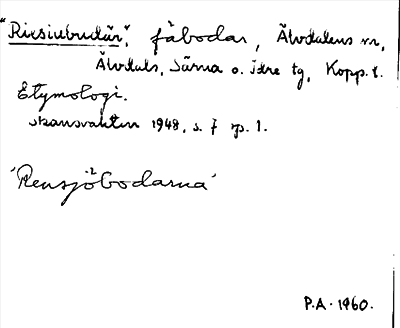 "Riksiubudär", fäbodar, Älvdalens sn,
Älvdals, Särna o. Idre tg, Kopp. l.
Etymologi.
Skansvakten 1948, s. 7 sp. 1.
'Rensjöbodarna'
P.A. 1960.